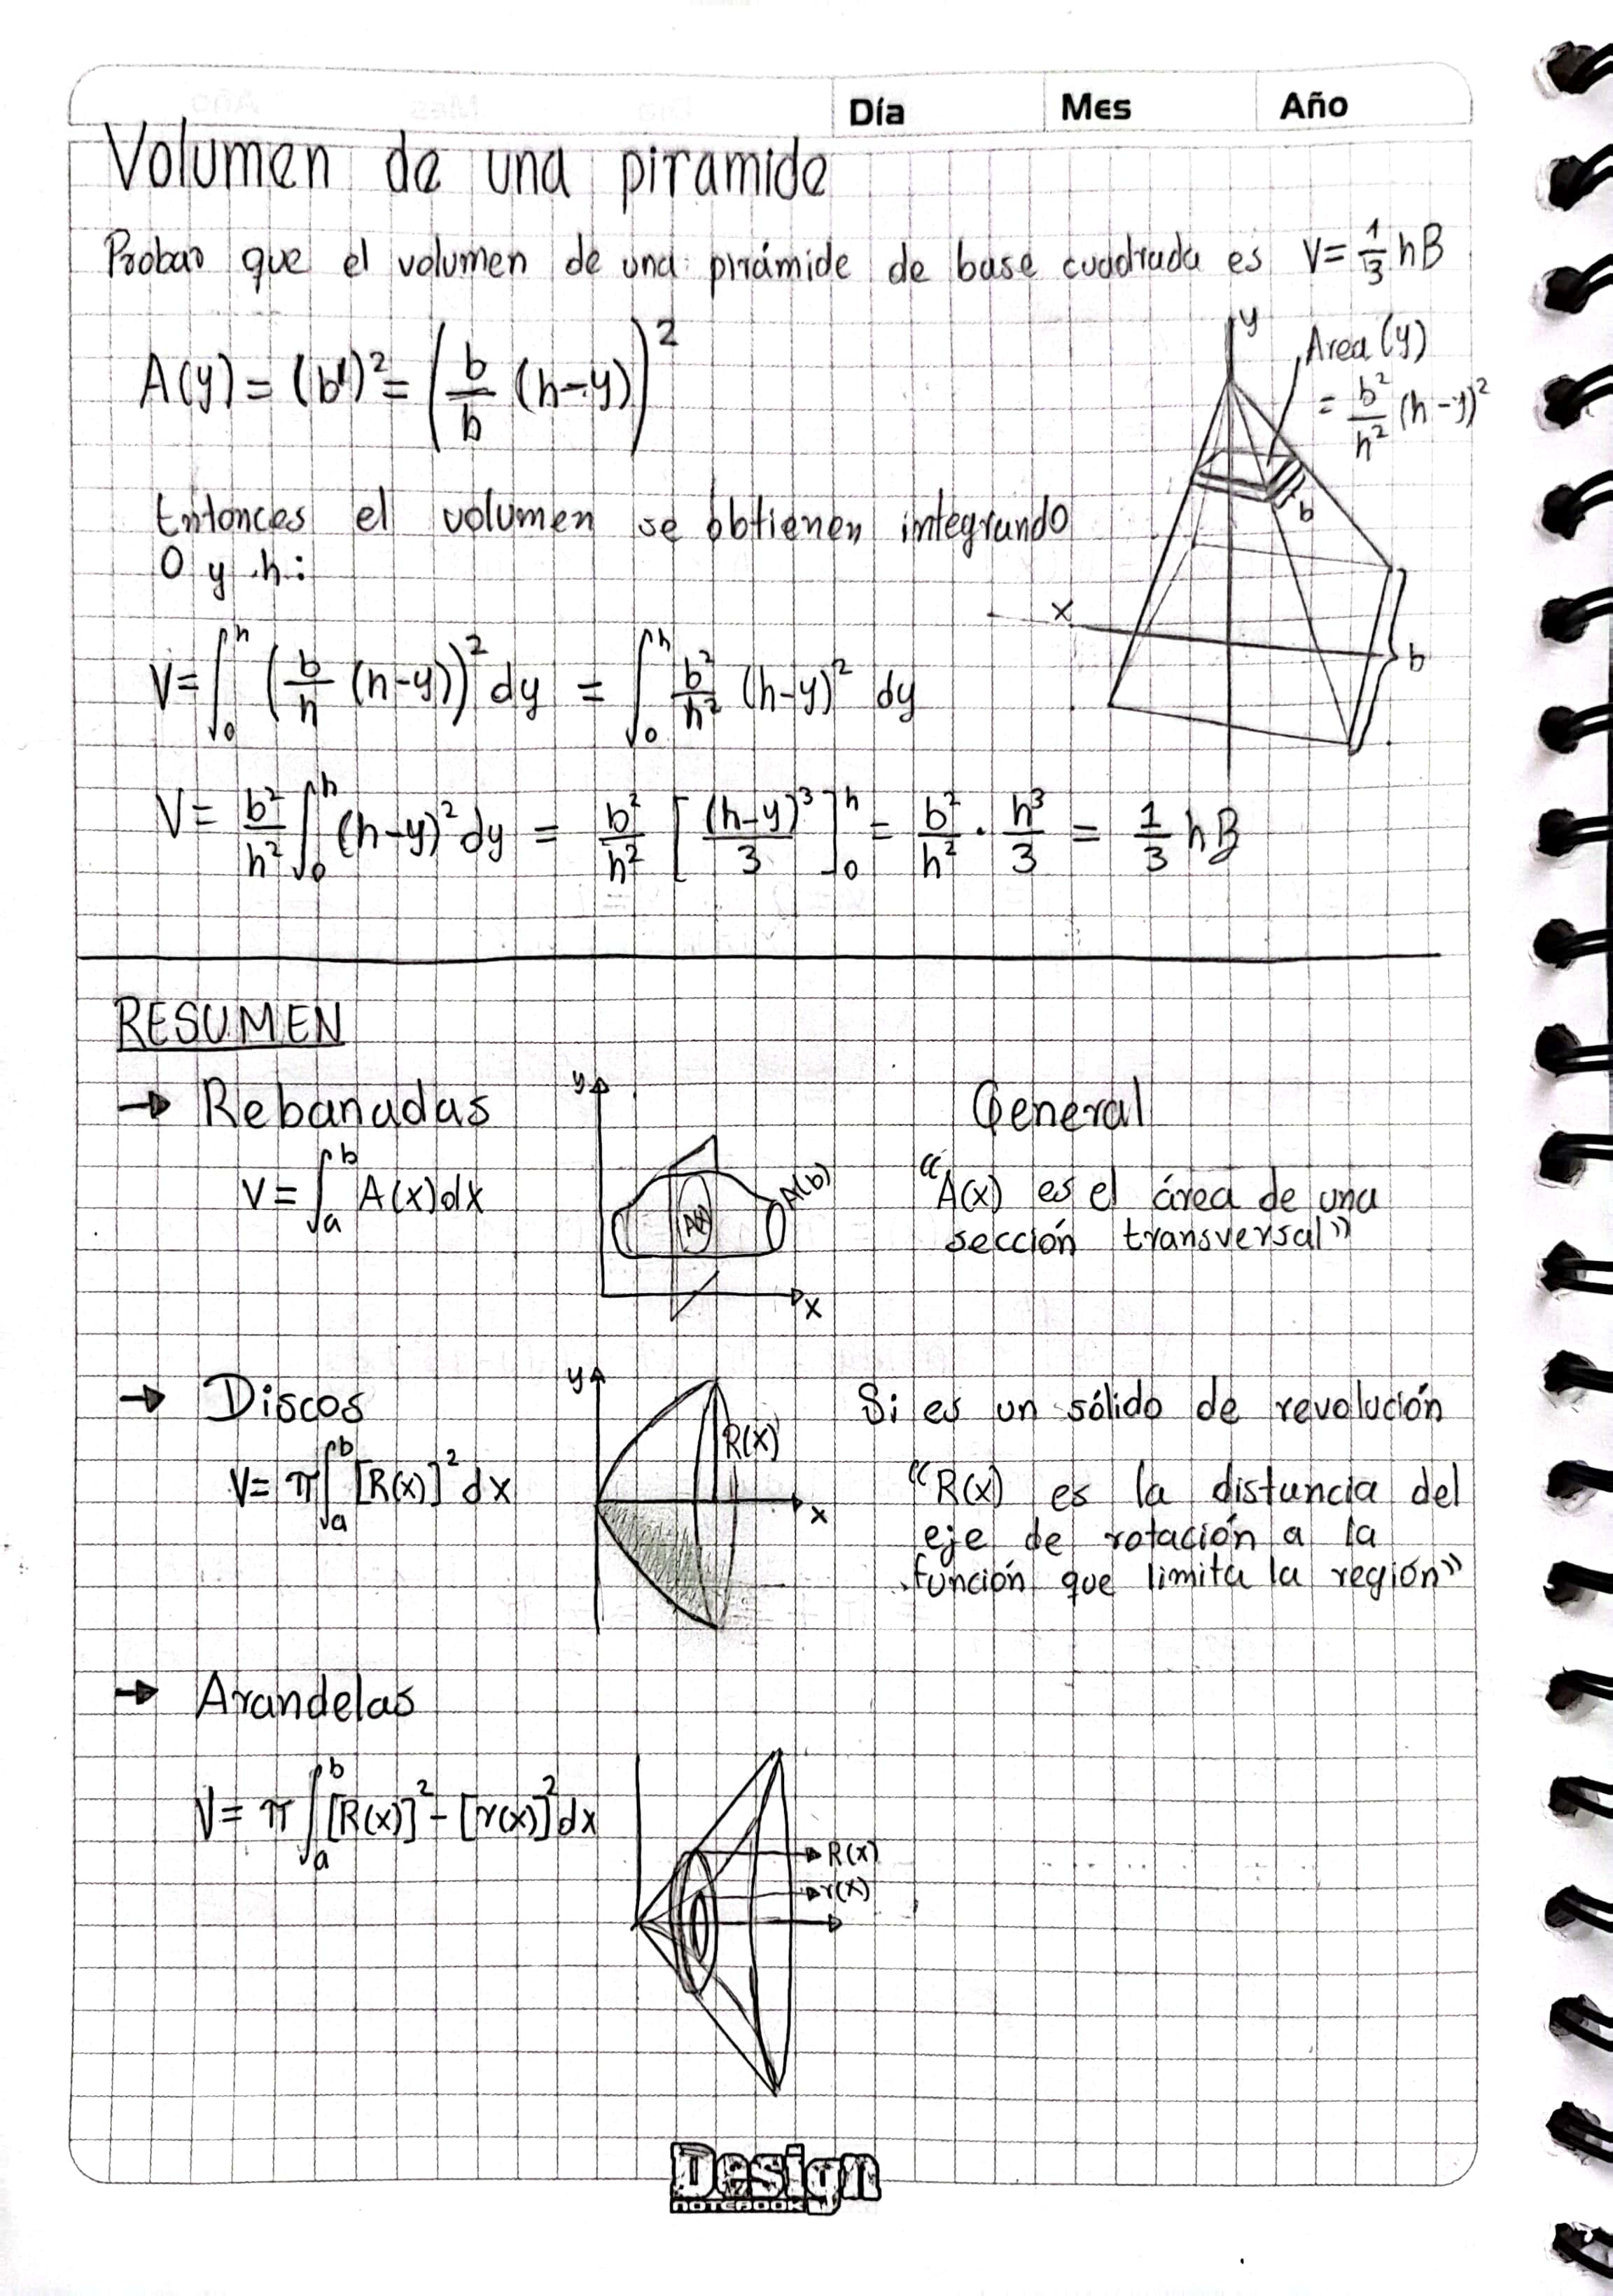 Día Mes Año
Volumen de una piramide
Probar que el volumen de una pirámide de base cuadrada es V = 1/3 hB
A(y) = (b')² = (b/b (h-y))²
y
Area (y)
= b²/h² (h-y)²
b
x
b
Entonces el volumen se obtienen integrando
0 y h:
V = ∫₀ʰ (b/h (h-y))² dy = ∫₀ʰ b²/h² (h-y)² dy
V = b²/h² ∫₀ʰ (h-y)² dy = b²/h² [(h-y)³/3]₀ʰ = b²/h² · h³/3 = 1/3 hB
RESUMEN
→ Rebanadas
V = ∫ₐᵇ A(x)dx
y
A(x)
A(b)
x
General
“A(x) es el área de una
sección transversal”
→ Discos
V = π∫ₐᵇ [R(x)]² dx
y
R(x)
x
Si es un sólido de revolución
“R(x) es la distancia del
eje de rotación a la
función que limita la región”
→ Arandelas
V = π∫ₐᵇ [R(x)]² - [r(x)]² dx
R(x)
r(x)
Design
NOTEBOOK